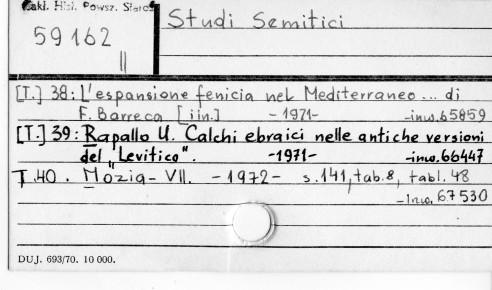 Zakł. Hist. Powsz. Staroż.
Studi Semitici
59162
||
[T.] 38: L'espansione fenicia nel Mediterraneo... di
F. Barreca [i in.] -1971- -inw.65859
[T.] 39: Rapallo U. Calchi ebraici nelle antiche versioni
del „Levitico". -1971- -inw.66447
T.40. Mozia - VII. -1972- s.141, tab.8, tabl.48
-inw.67530
DUJ. 693/70. 10 000.